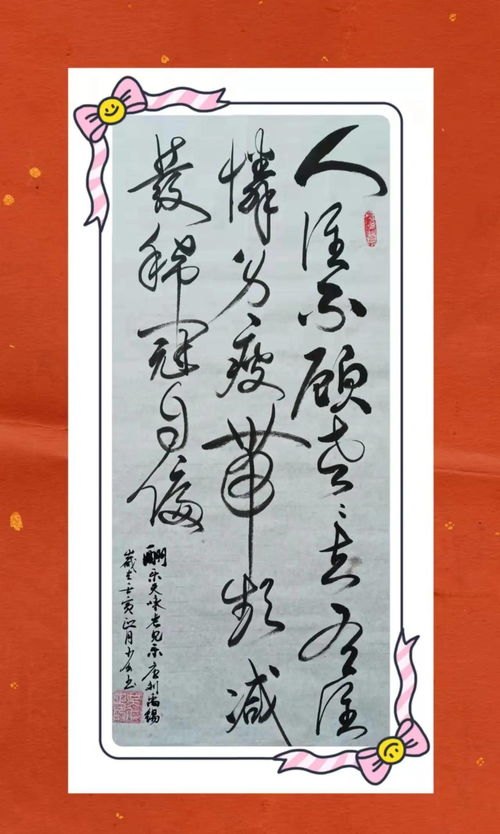 人谁不顾老々去有谁
憐身瘦帶频减
发稀冠自偏
酬乐天咏老见示唐刘禹锡
歲在壬寅月书